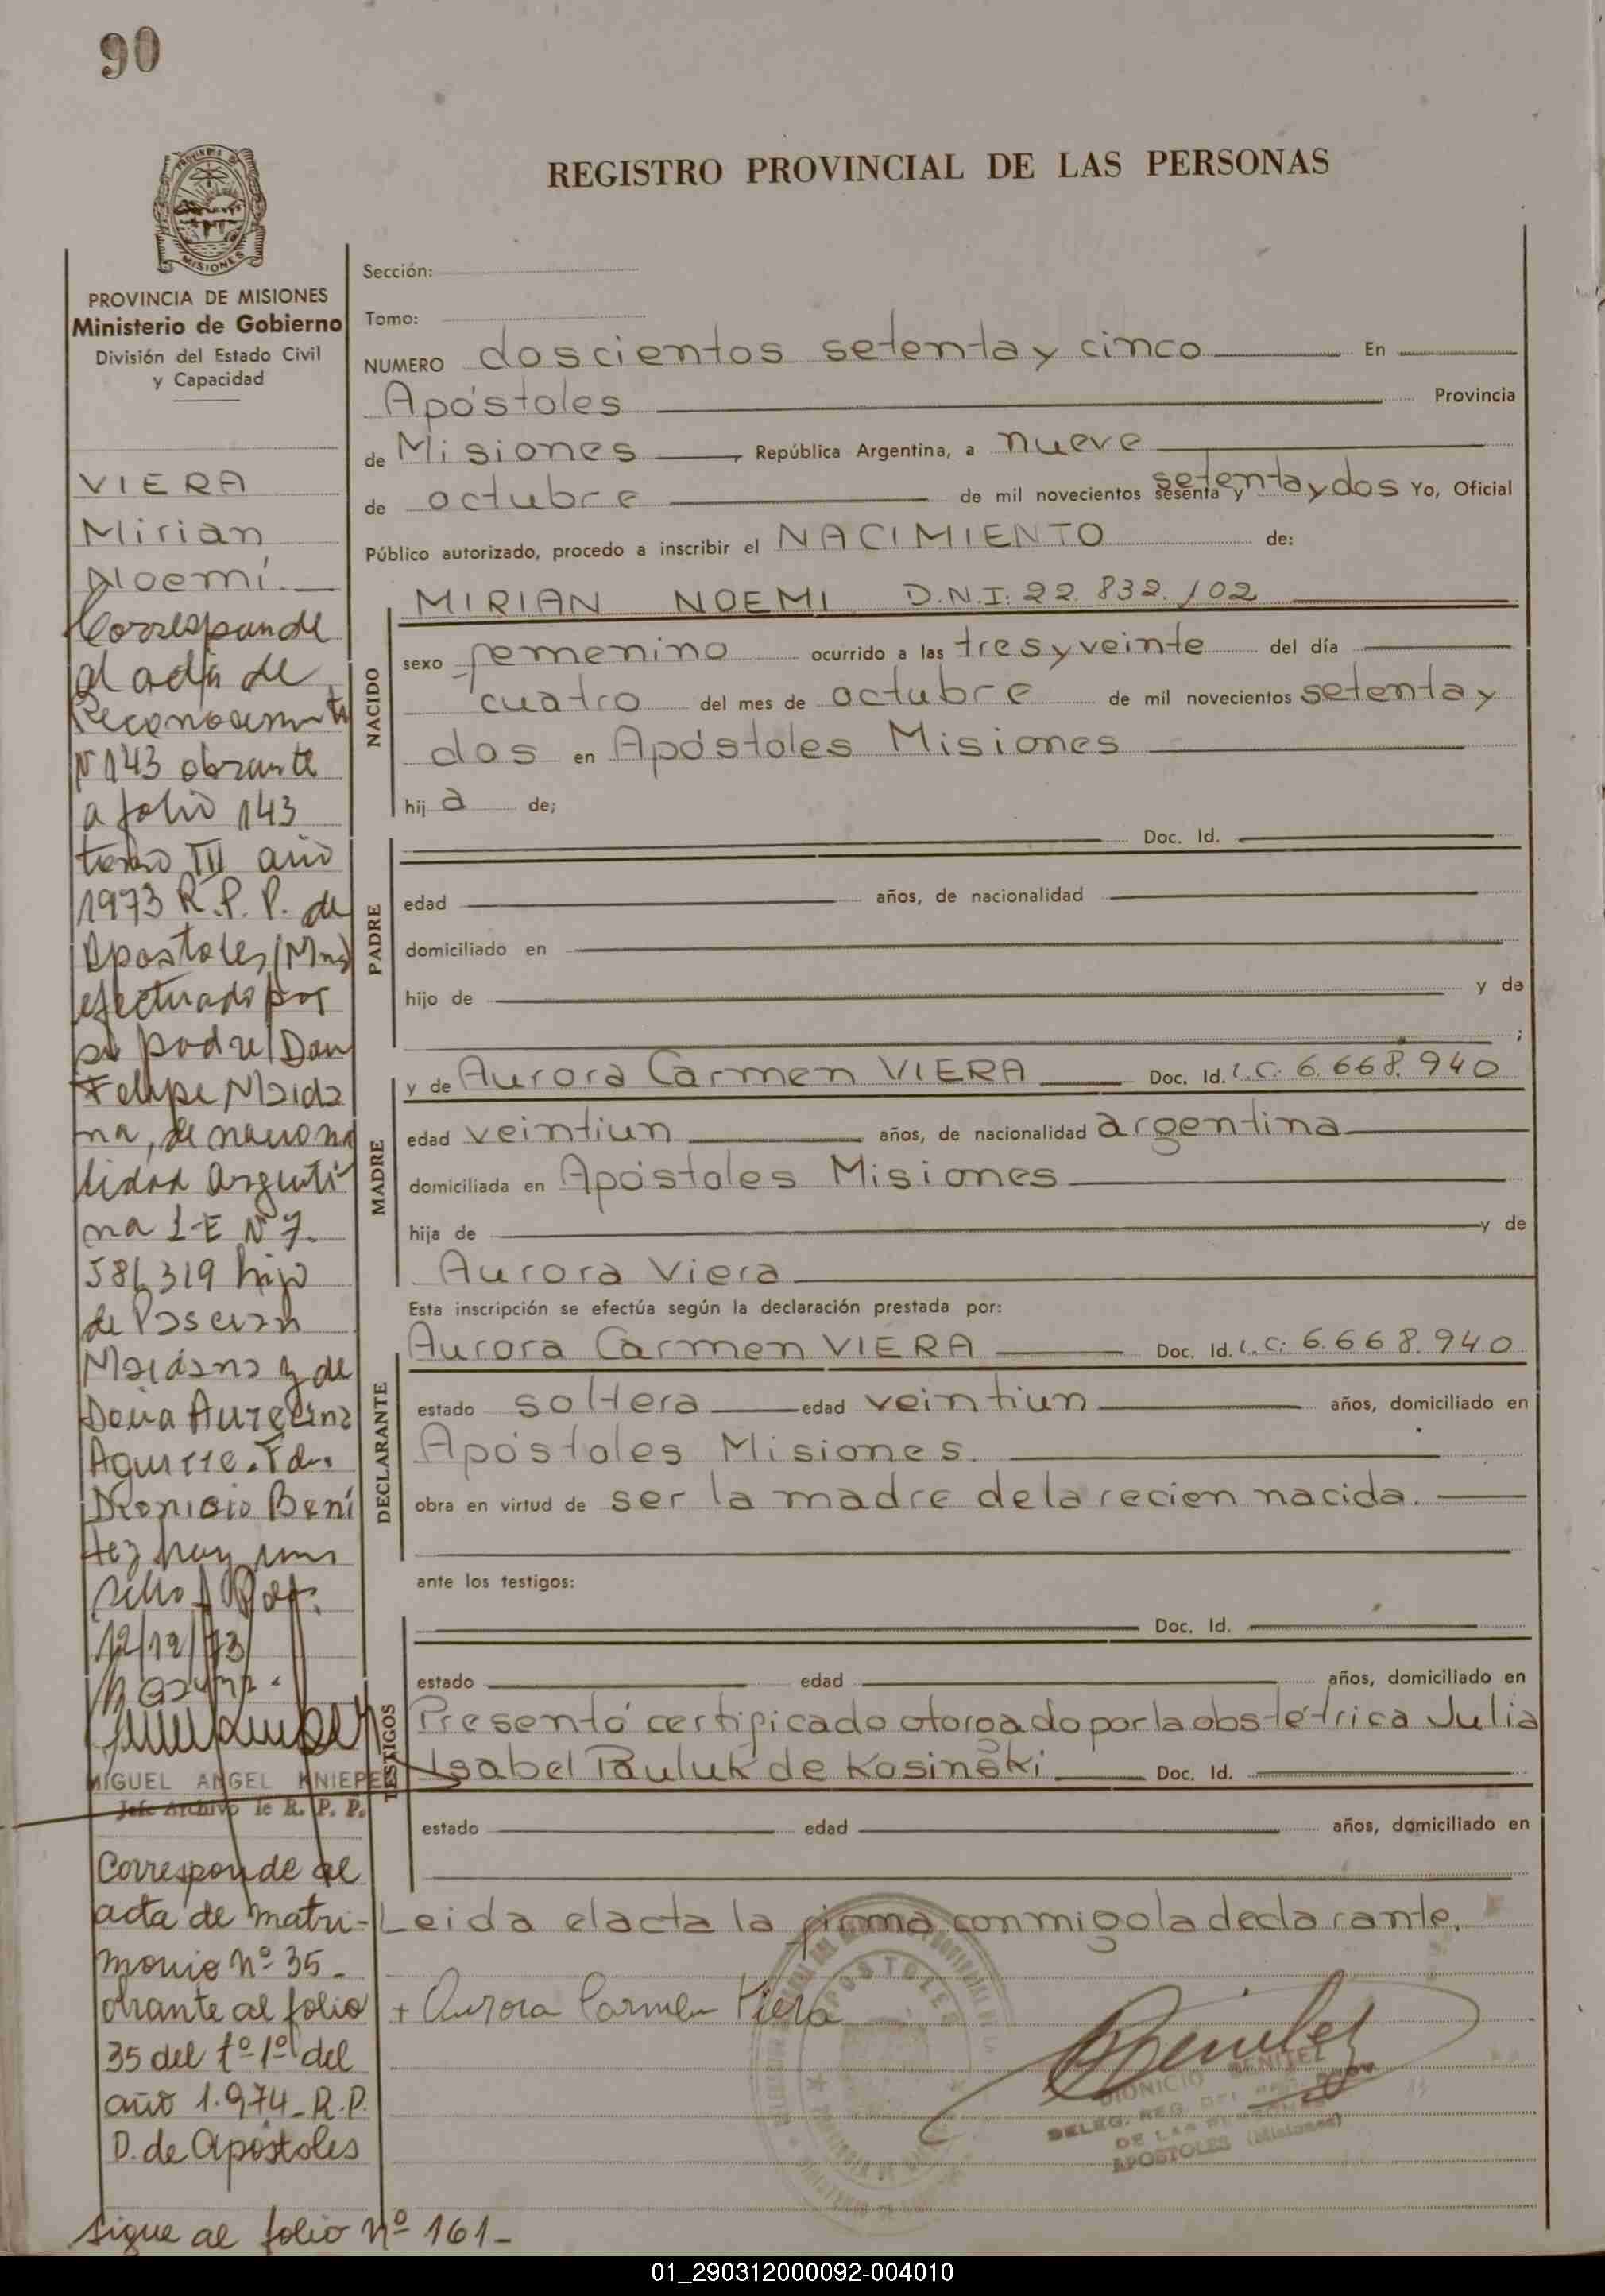 90
PROVINCIA DE
MISIONES
REGISTRO PROVINCIAL DE LAS PERSONAS
PROVINCIA DE MISIONES
Ministerio de Gobierno
División del Estado Civil
y Capacidad
VIERA
Mirian
Noemí.
Corresponde
al acta de
Reconocimiento
Nº 143 obrante
a folio 143
tomo III año
1973 R.P.P. de
Apostoles (Mns)
efectuado por
su padre Don
Felipe Maida
na, de naciona
lidad Argenti
na L-E Nº 7.
581.319 hijo
de Pascual
Maidana y de
Doña Aurelina
Aguirre. Fdo.
Dionicio Bení
tez hay un
sello
12/12/73
MIGUEL ANGEL KNIEPE
Jefe Archivo de R. P. P.
Corresponde al
acta de matri-
monio nº 35-
obrante al folio
35 del tº 1º del
año 1.974-R.P.
D. de Apóstoles
Sigue al folio nº 161-
Sección:
Tomo:
NUMERO doscientos setenta y cinco En
Apóstoles Provincia
de Misiones, República Argentina, a nueve
de octubre de mil novecientos sesenta y setenta y dos Yo, Oficial
Público autorizado, procedo a inscribir el NACIMIENTO de:
NACIDO
MIRIAN NOEMI D.N.I. 22.832.102
sexo femenino ocurrido a las tres y veinte del día
cuatro del mes de octubre de mil novecientos setenta y
dos en Apóstoles Misiones
hija de;
PADRE
Doc. Id.
edad años, de nacionalidad
domiciliado en
hijo de y de
;
MADRE
y de Aurora Carmen VIERA Doc. Id. L.C: 6.668.940
edad veintiun años, de nacionalidad argentina
domiciliada en Apóstoles Misiones
hija de y de
Aurora Viera
Esta inscripción se efectúa según la declaración prestada por:
DECLARANTE
Aurora Carmen VIERA Doc. Id. L.C: 6.668.940
estado soltera edad veintiun años, domiciliado en
Apóstoles Misiones.
obra en virtud de ser la madre de la recien nacida.
ante los testigos:
TESTIGOS
Doc. Id.
estado edad años, domiciliado en
Presentó certificado otorgado por la obstétrica Julia
Isabel Pauluk de Kosinski Doc. Id.
estado edad años, domiciliado en
Leida el acta la firma conmigo la declarante.
+ Aurora Carmen Viera
APOSTOLES
DIONICIO BENITEZ
DELEG. REG. DEL
DE LAS PERSONAS
APOSTOLES (Misiones)
01_290312000092-004010